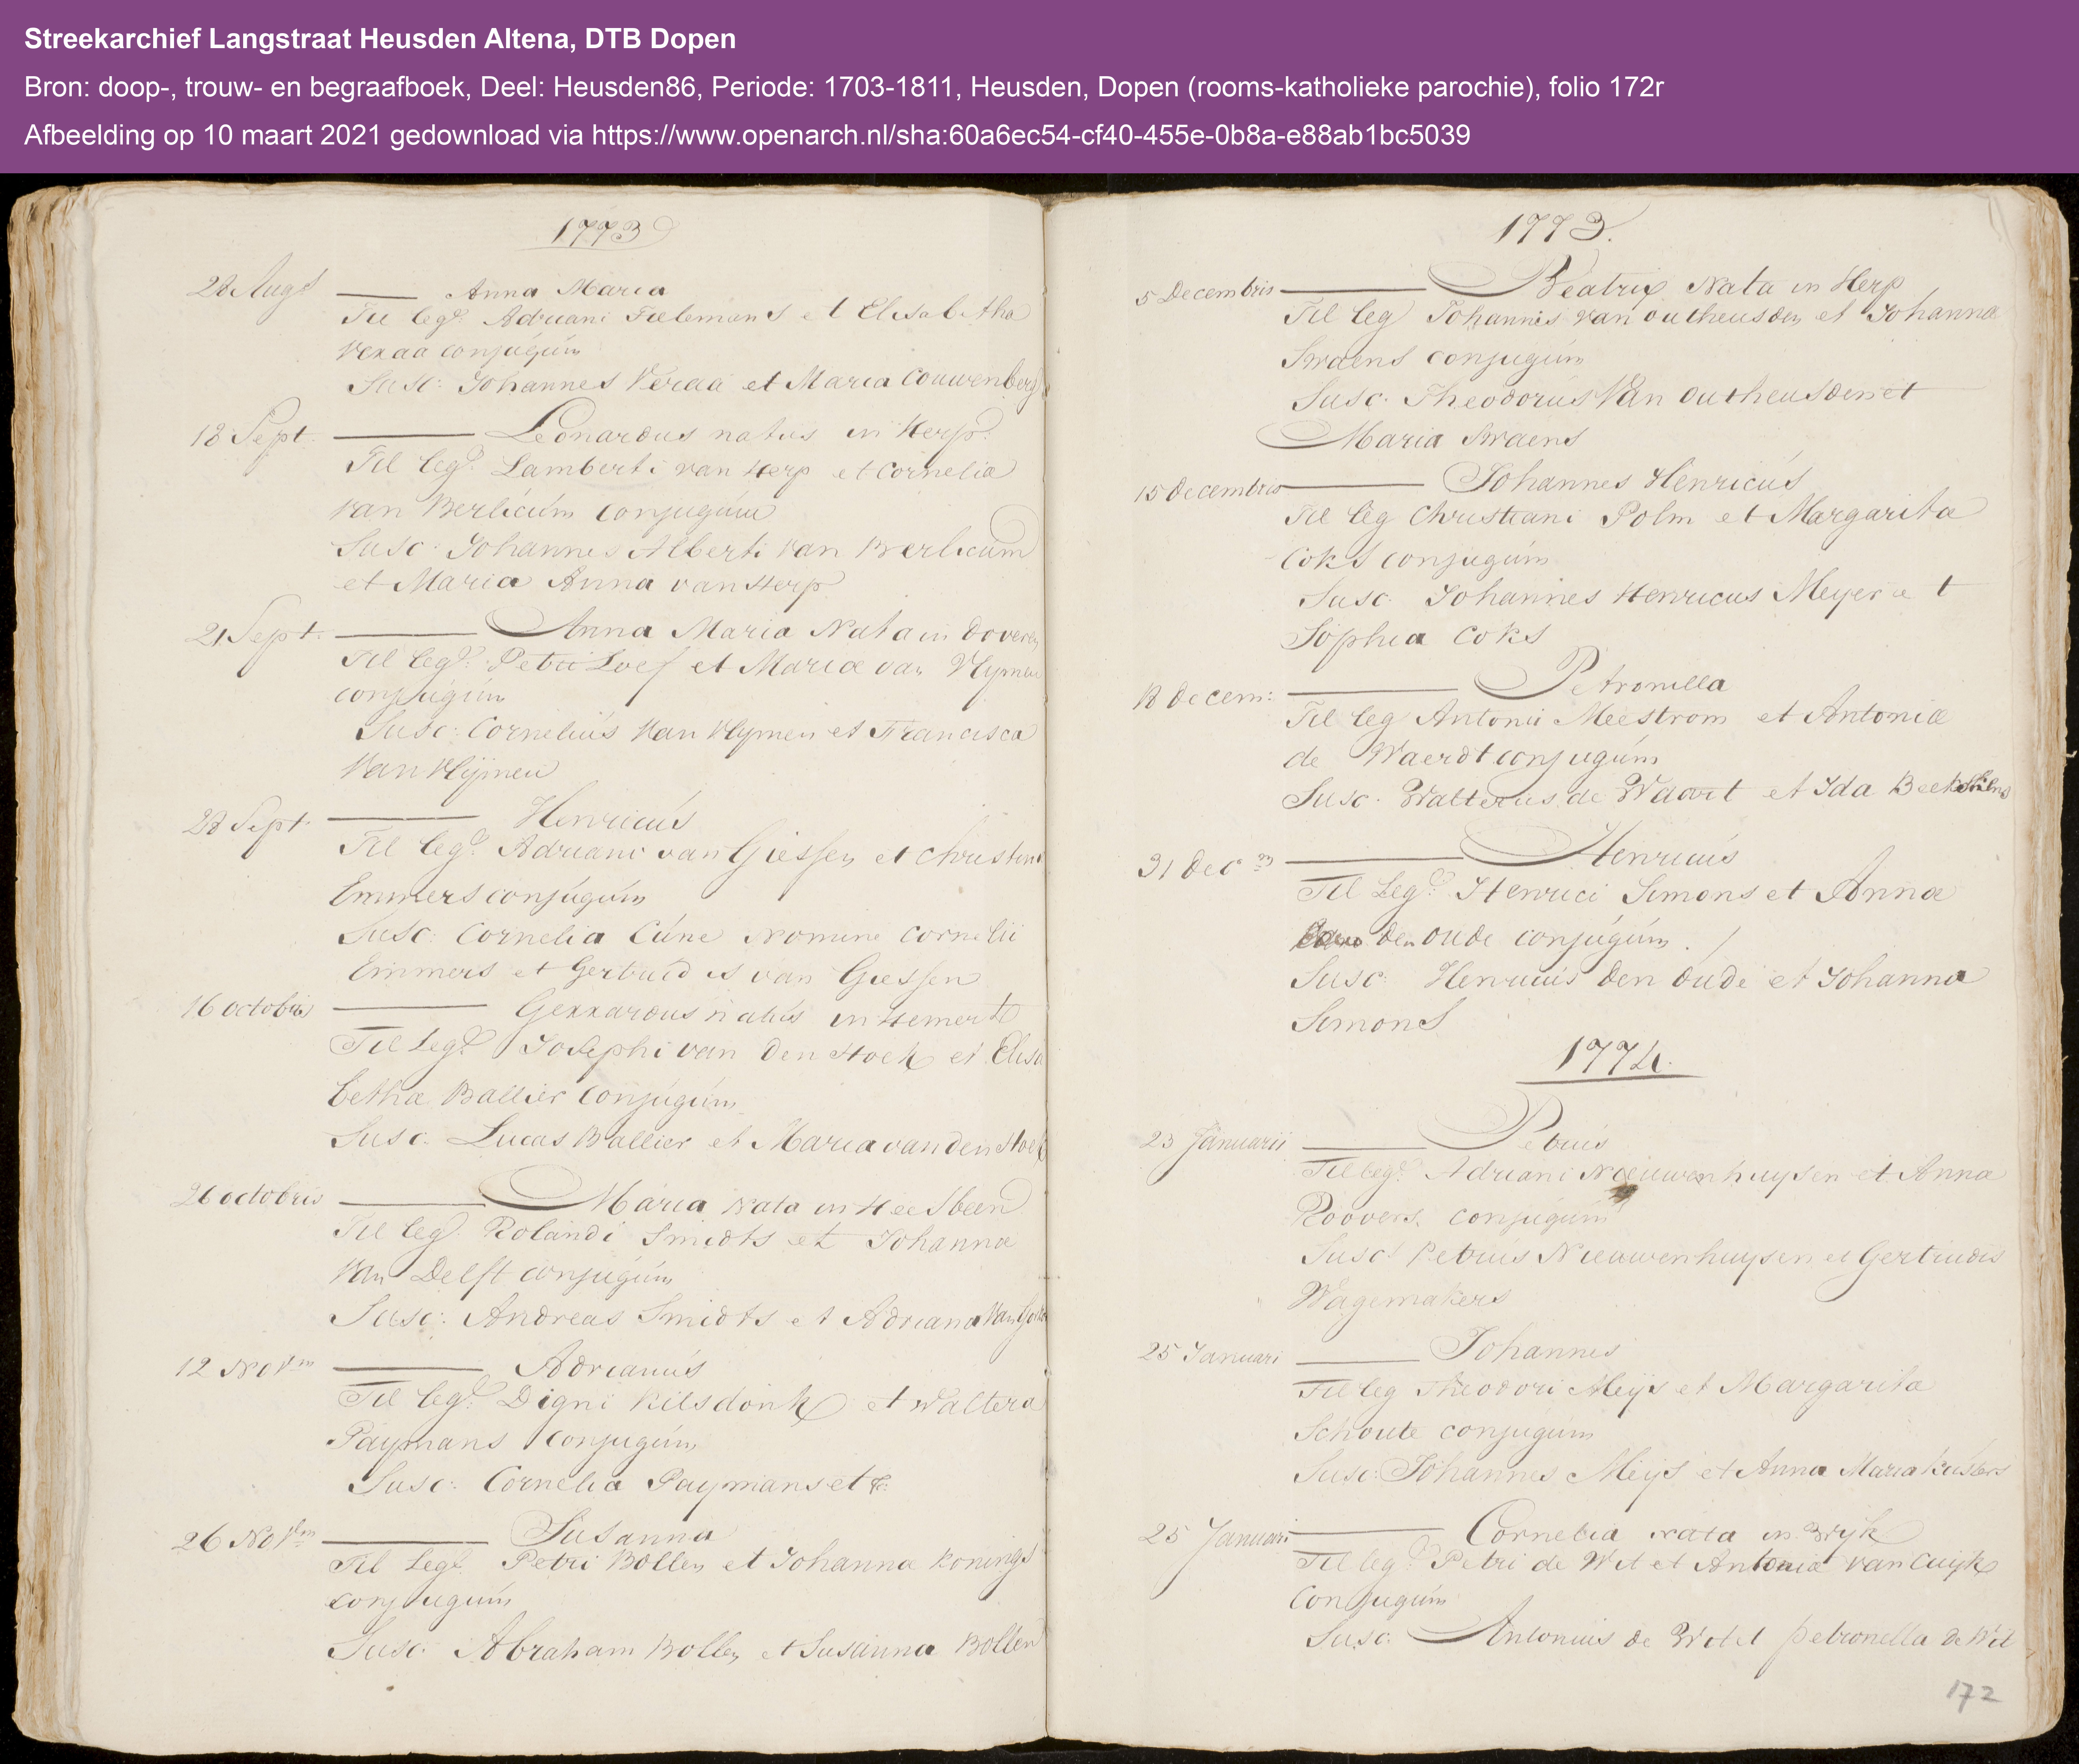 Streekarchief Langstraat Heusden Altena, DTB Dopen
Bron: doop-, trouw- en begraafboek, Deel: Heusden86, Periode: 1703-1811, Heusden, Dopen (rooms-katholieke parochie), folio 172r
Afbeelding op 10 maart 2021 gedownload via https://www.openarch.nl/sha:60a6ec54-cf40-455e-0b8a-e88ab1bc5039
1773
28 Augs Anna Maria
Fil leg: Adriani Tielemans et Elisabetha
Veraa conjugúm
Susc: Johannes Veraa et Maria Couwenberg
18 Sept. Leonardus natus in Herp.
Fil leg: Lamberti van Herp et Cornelia
van Berlicúm conjugúm
Susc: Johannes Alberti van Berlicum
et Maria Anna van Herp
21 Sept. Anna Maria Nata in Doveren
Fil leg: Petri Loef et Mariæ van Vlymen
conjugúm
Susc: Corneliús van Vlymen et Francisca
van Vlijmen
28 Sept. Henricús
Fil leg: Adriani van Giessen et Christin
Emmers conjúgúm
Susc: Cornelia Cúne nomine Cornelii
Emmers et Gertrudis van Giessen
16 octobris Gerrardus natús in Hemert
Fil leg: Josephi van den Hoek et Elisa
bethæ Ballier conjúgúm
Susc. Lucas Ballier et Maria van den Hoek
26 octobris Maria nata in Heesbeen
Fil leg Rolandi Smidts et Johannæ
van Delft conjugúm
Susc: Andreas Smidts et Adriana van
12 Novm Adrianús
Fil leg: Digni Kilsdonk et Waltera
Paymans conjugúm
Susc: Cornelia Paymans et &:
26 Novm Susanna
Fil leg: Petri Bollen et Johannæ Konings
conjugúm
Susc: Abraham Bollen et Susanna Bollen
1773.
5 Decembris Beatrix Nata in Herp
Fil leg Johannis van outheusden et Johannæ
Swaens conjugúm
Susc: Theodorus Van outheusden et
Maria Swaens
15 decembris Johannes Henricús
Fil leg Christiani Polm et Margaritæ
Coks conjugúm
Susc: Johannes Henricus Meyer et
Sophia Coks
18 decem: Petronella
Fil leg Antonii Meestrom et Antoniæ
de Waerdt conjugúm
Susc: Walterus de Waert et Ida
31 decm Henricús
Fil Leg: Henrici Simons et Annæ
den oude conjúgúm.
Susc: Henricús den oúde et Johanna
Simons
1774.
23 Januarii Petrús
Fil leg: Adriani Nieuwenhuysen et Annæ
Roovers conjúgúm
Susc: Petrús Nieuwenhuysen et Gertrudis
Wagemakers
25 Januari Johannes
Fil leg Theodori Meijs et Margaritæ
Schoute conjugúm
Susc: Johannes Meijs et Anna Maria Kústers
25 Januari Cornelia nata in Wyk
Fil leg: Petri de Wit et Antonia van Cuijk
Conjugúm
Susc: Antonius de Wit et petronella de Wit
172